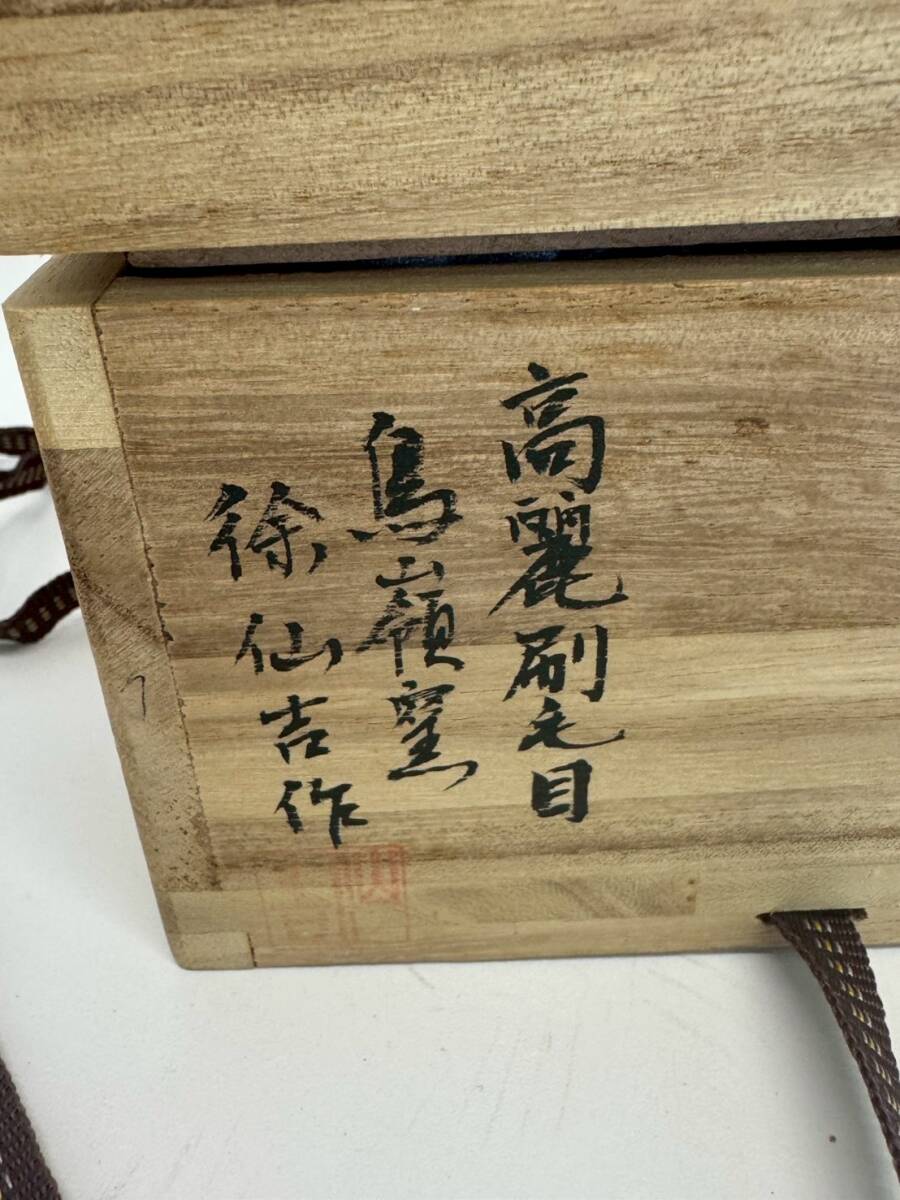 高麗刷毛目
鳥嶺窯
徐仙吉作